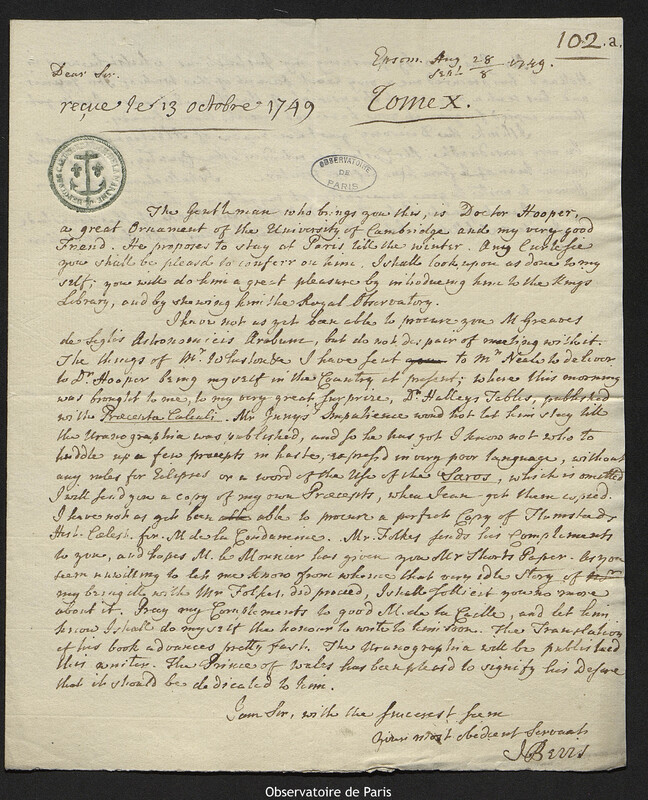 102.a.
Epsom. Aug 28
Sept. 8 1749.
Dear Sir.
reçue le 13 octobre 1749
Tome X.
OBSERVATOIRE
DE
PARIS
The Gentleman who brings you this, is Doctor Hooper,
a great Ornament of the University of Cambridge and my very good
Friend. He proposes to stay at Paris till the winter. Any Curtesie
you shall be pleasd to conferr on him I shall look upon as done to my
self; you will do him a great pleasure by introducing him to the Kings
Library, and by shewing him the Royal Observatory.
I have not as yet been able to procure you Mr Greaves
de Siglis Astronomicis Arabum, but do not despair of meeting with it.
The things of Mr. Whiston &c I have sent to Mr Neale to deliver
to Dr. Hooper being my self in the Country at present; where this morning
was brought to me, to my very great surprize, Dr. Halleys Tables, published
with Præcepta Calculi. Mr Innys's Impatience woud not let him stay till
the Uranographia was published, and so he has got I know not who to
huddle up a few precepts in haste, expressd in very poor language, without
any rules for Eclipses or a word of the Use of the Saros, which is omitted
I will send you a copy of my own Precepts, when I can get them copied.
I have not as yet been able to procure a perfect Copy of Flamsteads
Hist. Cælest. for M. de la Condamine. Mr. Folkes sends his Complements
to you, and hopes M. le Monnier has given you Mr Shorts Paper. As you
seem unwilling to let me know from whence that very idle Story of
my being ill with Mr Folkes, did proceed, I shall sollicit you no more
about it. Pray my Complements to good M. de la Caille, and let him
know I shall do my self the honour to write to him soon. The Translation
of his book advances pretty fast. The Uranographia will be published
this winter. The Prince of Wales has been pleasd to signify his Desire
that it should be dedicated to him.
I am Sir, with the sincerest esteem
your most obedient Servant
J Bevis
Observatoire de Paris